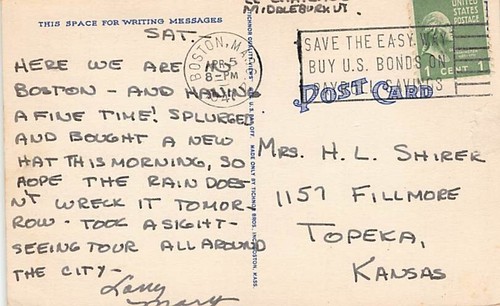 THIS SPACE FOR WRITING MESSAGES
SAT-
HERE WE ARE IN
BOSTON - AND HAVING
A FINE TIME! SPLURGED
AND BOUGHT A NEW
HAT THIS MORNING, SO
HOPE THE RAIN DOES-
N'T WRECK IT TOMOR-
ROW - TOOK A SIGHT-
SEEING TOUR ALL AROUND
THE CITY-
Larry
Mary
MIDDLEBURY VT.
BOSTON, MASS.
APR 5
8-PM
SAVE THE EASY WAY
BUY U.S. BONDS ON
SAVINGS
UNITED
STATES
POSTAGE
1 CENT 1
POST CARD
MRS. H. L. SHIRER
1157 FILLMORE
TOPEKA,
KANSAS
MADE ONLY BY TICHNOR BROS., INC., BOSTON, MASS.